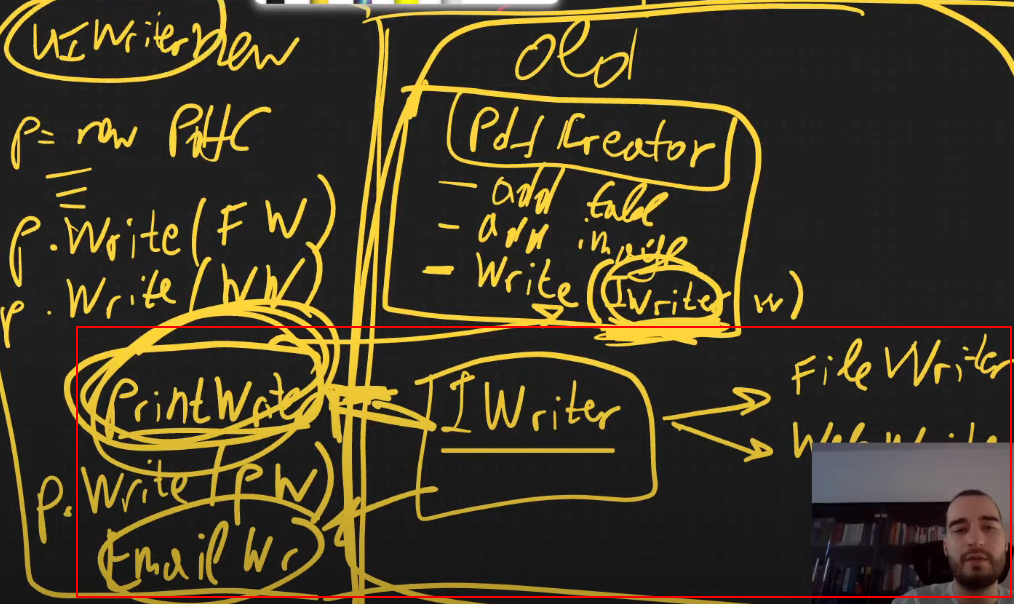 UIWriter new
p= new PdfC
p.Write(FW)
p.Write(WW)
PrintWrite
p.Write(PW)
Email Wr
old
Pdf Creator
- add tabl
- add image
- Write (IWriter w)
IWriter
File Writer
Web Write